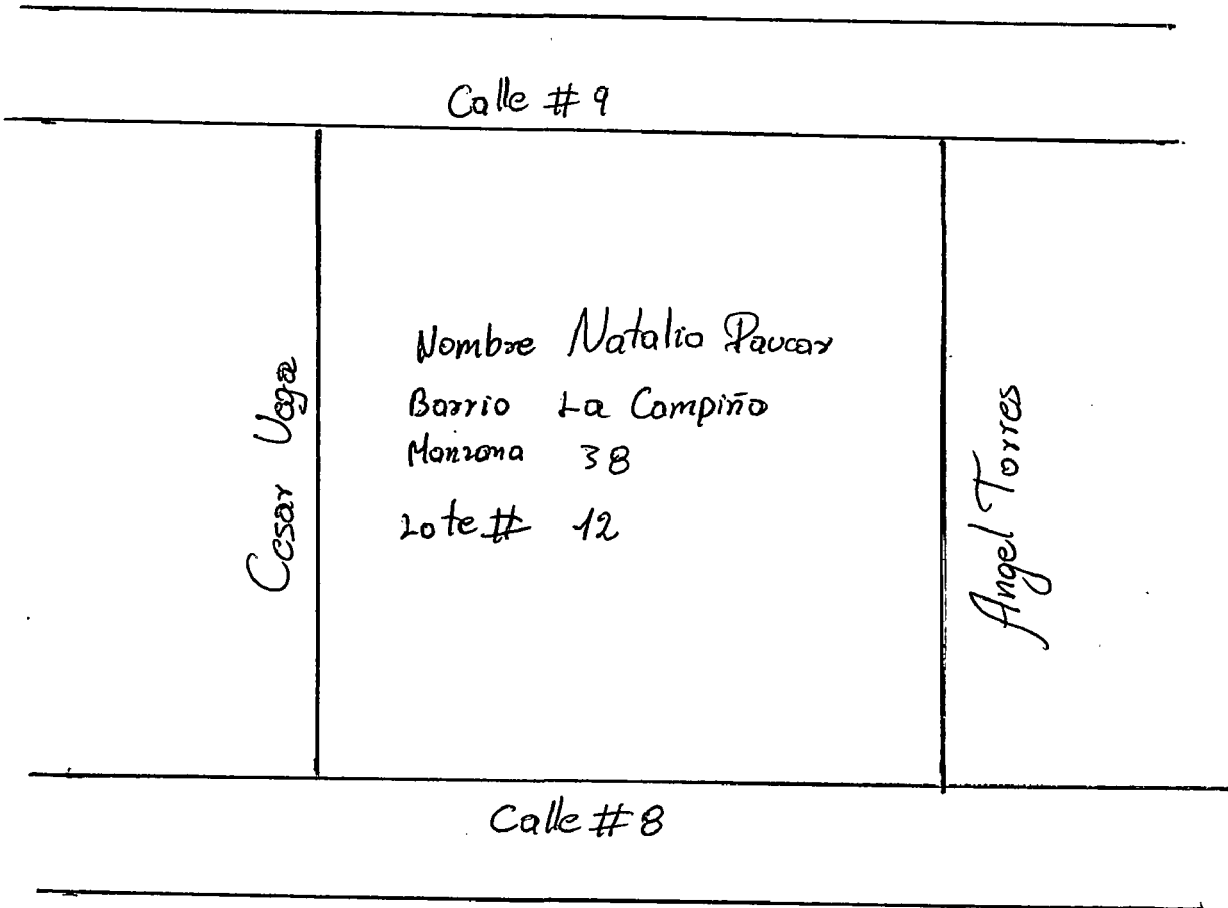 Calle # 9
Cesar Vega
Nombre Natalia Paucar
Barrio La Campiña
Manzana 38
Lote # 12
Angel Torres
Calle # 8